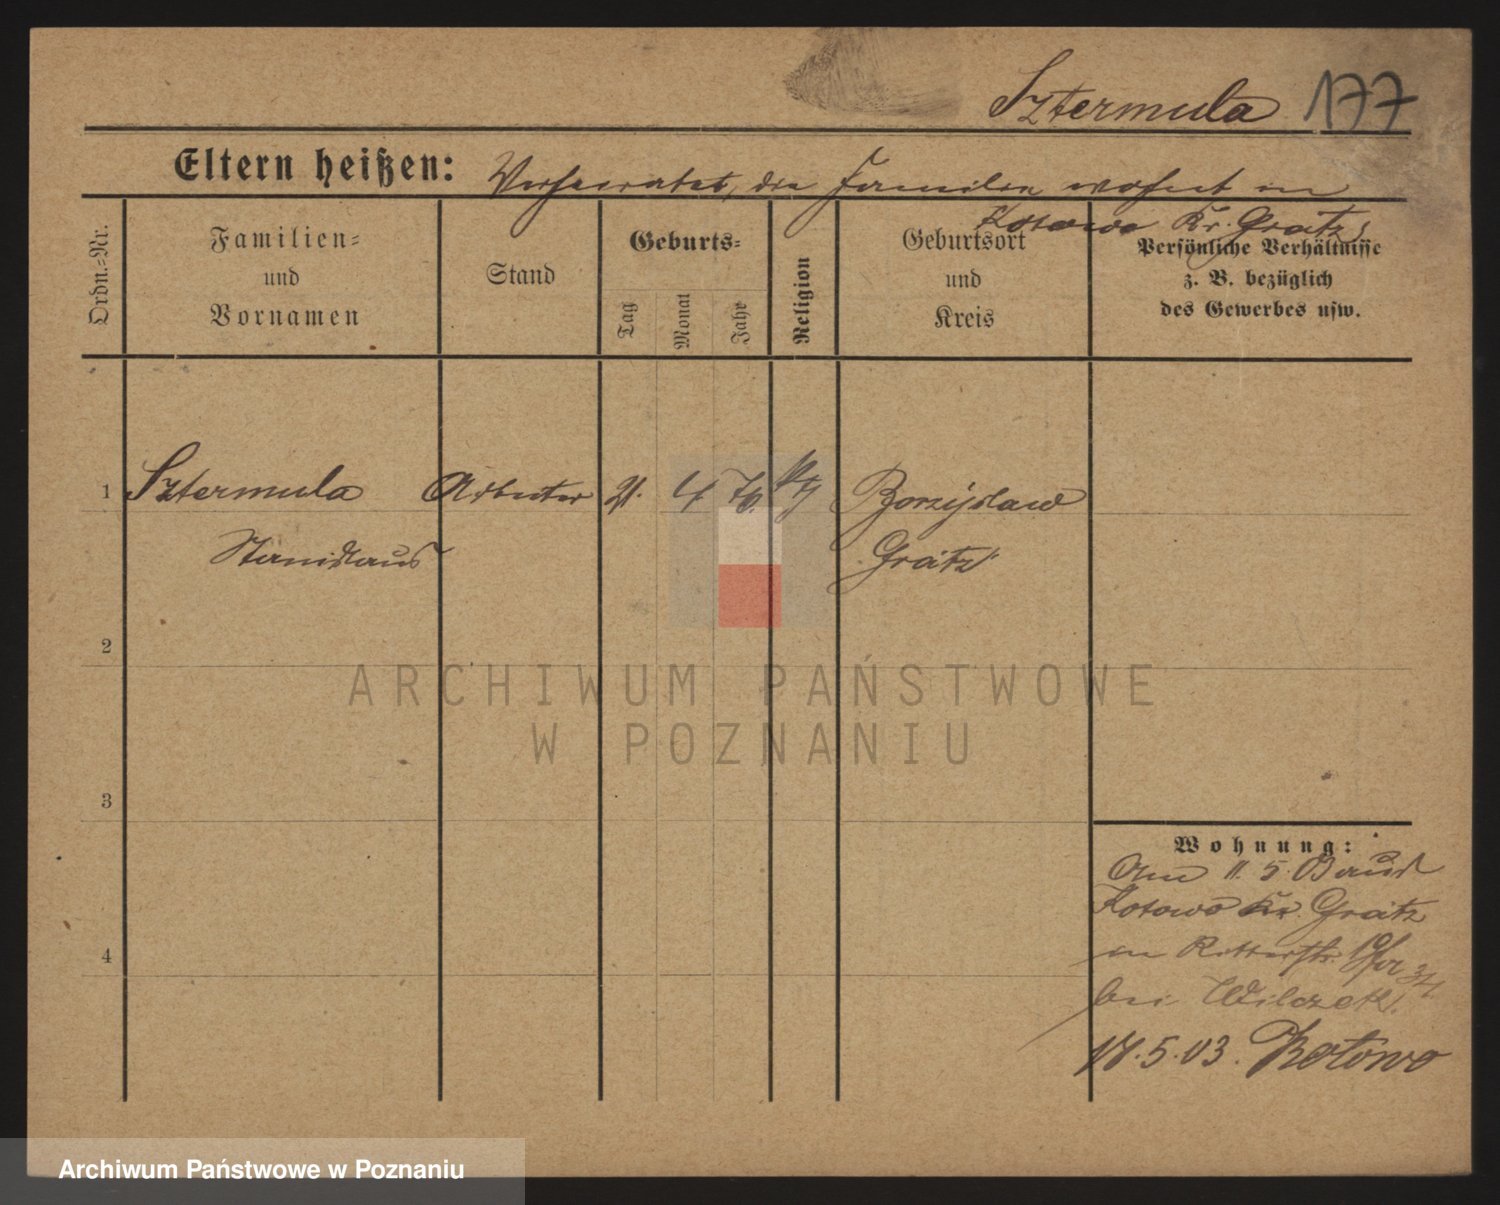 Sztermula 177
Eltern heißen: Verheiratet, die Familie wohnt in
Kotowo Kr. Grätz
Ordn.-Nr.
Familien-
und
Vornamen
Stand
Geburts-
Tag
Monat
Jahr
Religion
Geburtsort
und
Kreis
Persönliche Verhältnisse
z. B. bezüglich
des Gewerbes usw.
1 Sztermula Arbeiter 21. 4 76. kth Borzyslaw
Stanislaus Grätz
2
3
4
ARCHIWUM PAŃSTWOWE
W POZNANIU
Wohnung:
Am 11.5.03 aus
Kotowo Kr. Grätz
in Ritterstr.
bei Wilczek.
18.5.03. Kotowo
Archiwum Państwowe w Poznaniu